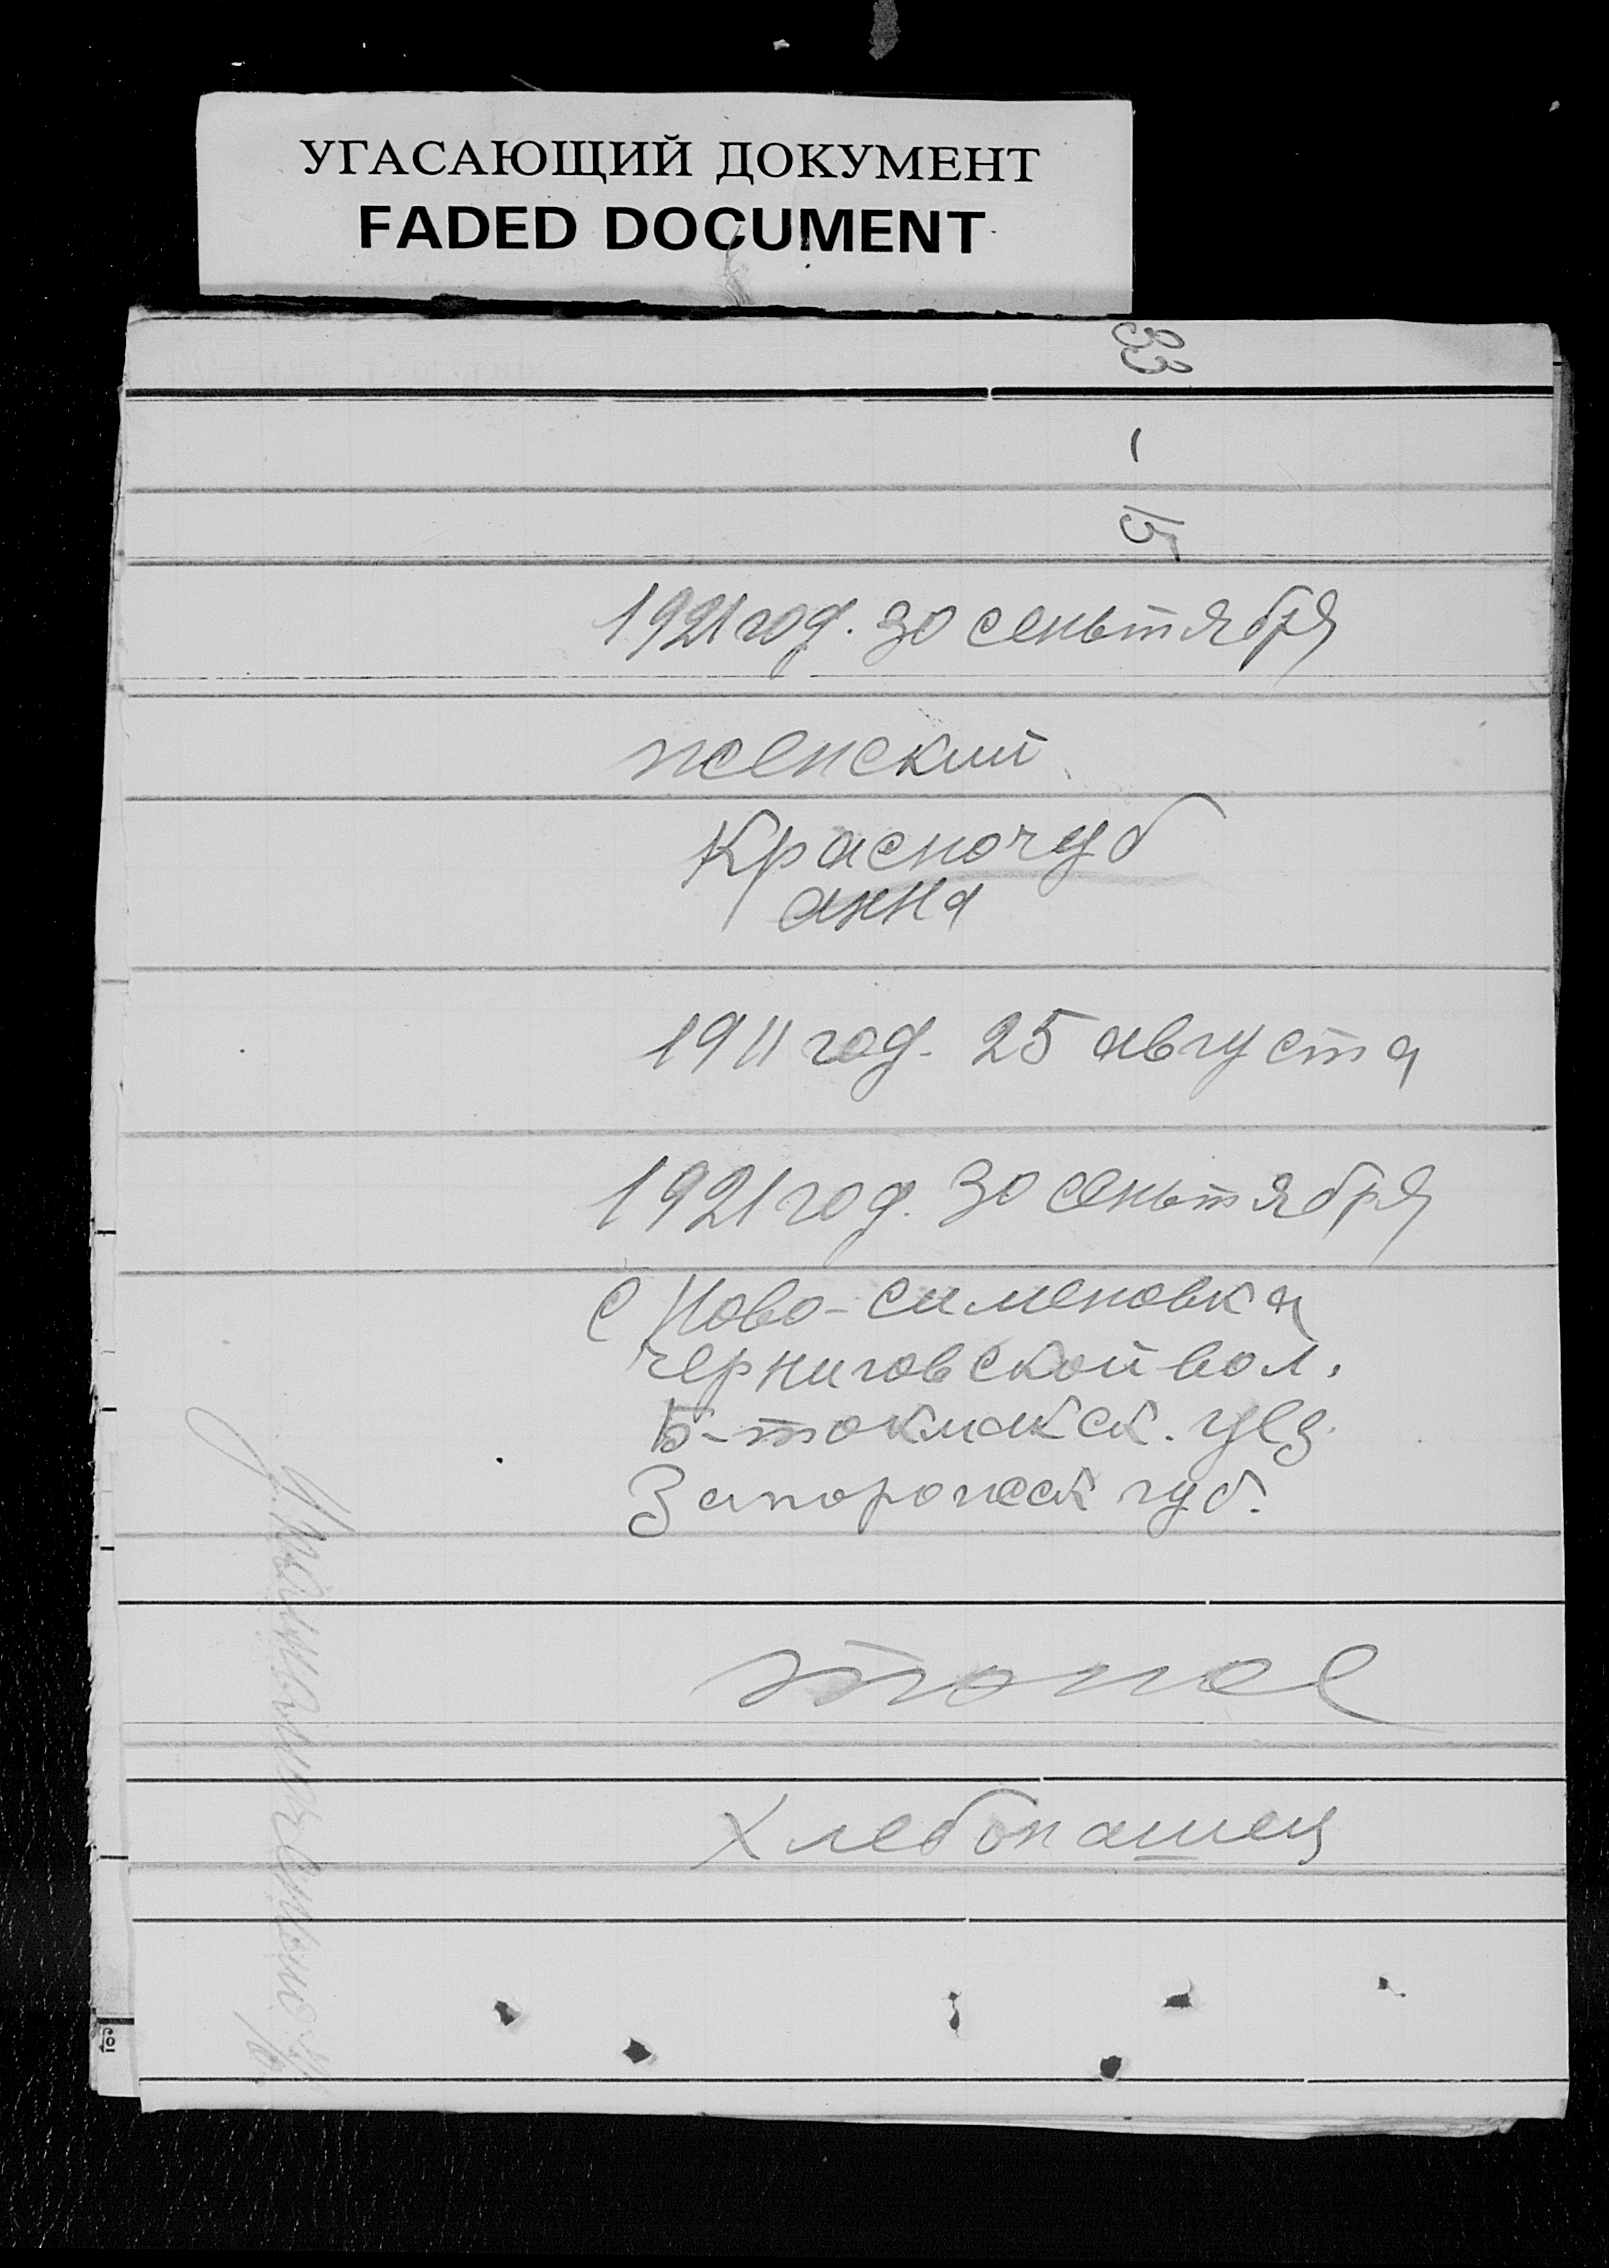 УГАСАЮЩИЙ ДОКУМЕНТ
FADED DOCUMENT
33
1
15
1921 год. 30 сеньтября
женский
Красночуб
анна
1911 год. 25 августа
1921 год. 30 сеньтября
с Ново-сименовка
черниговской вол.
Б-токмакск. уез.
Запорожск губ.
тоже
Хлебопашец